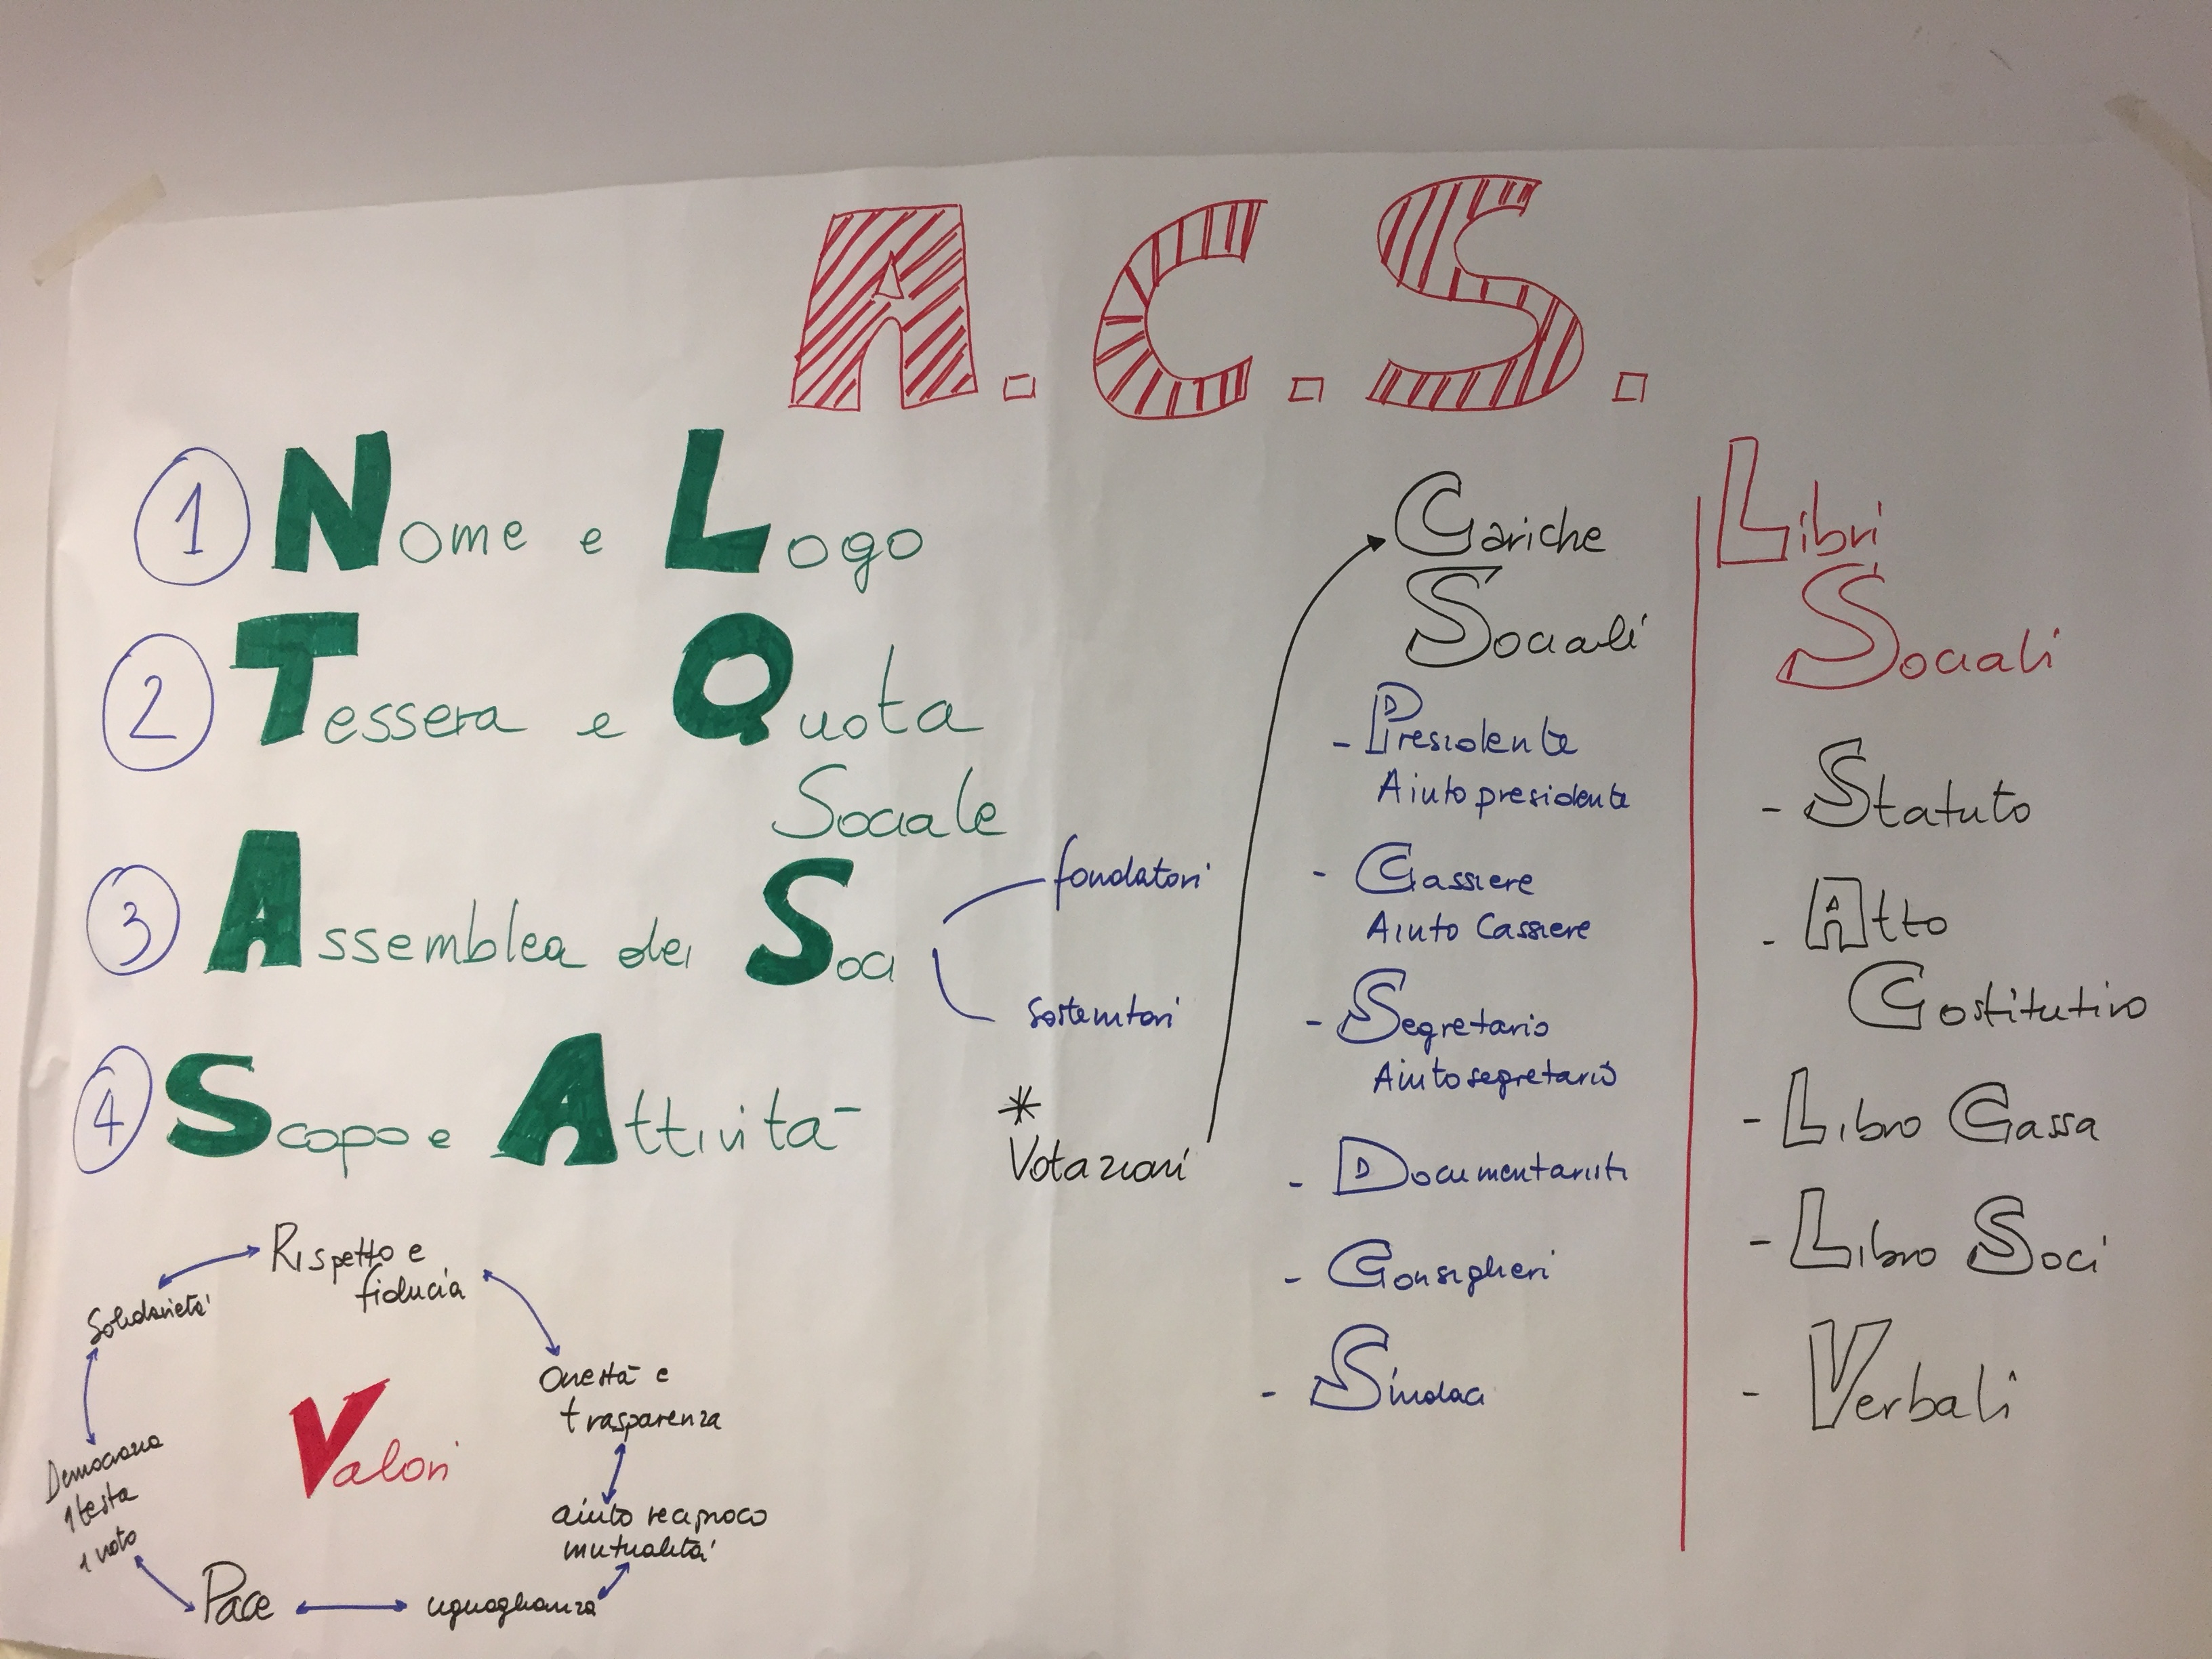 A.C.S.
1 Nome e Logo
2 Tessera e Quota
Sociale
3 Assemblea dei Soci
fondatori
sostenitori
4 Scopo e Attività
*
Votazioni
Cariche
Sociali
- Presidente
Aiuto presidente
- Cassiere
Aiuto Cassiere
- Segretario
Aiuto segretario
- Documentaristi
- Consiglieri
- Sindaci
Libri
Sociali
- Statuto
- Atto
Costitutivo
- Libro Cassa
- Libro Soci
- Verbali
Valori
Rispetto e
fiducia
Onestà e
trasparenza
aiuto reciproco
mutualità
uguaglianza
Pace
Democrazia
1 testa
1 voto
Solidarietà